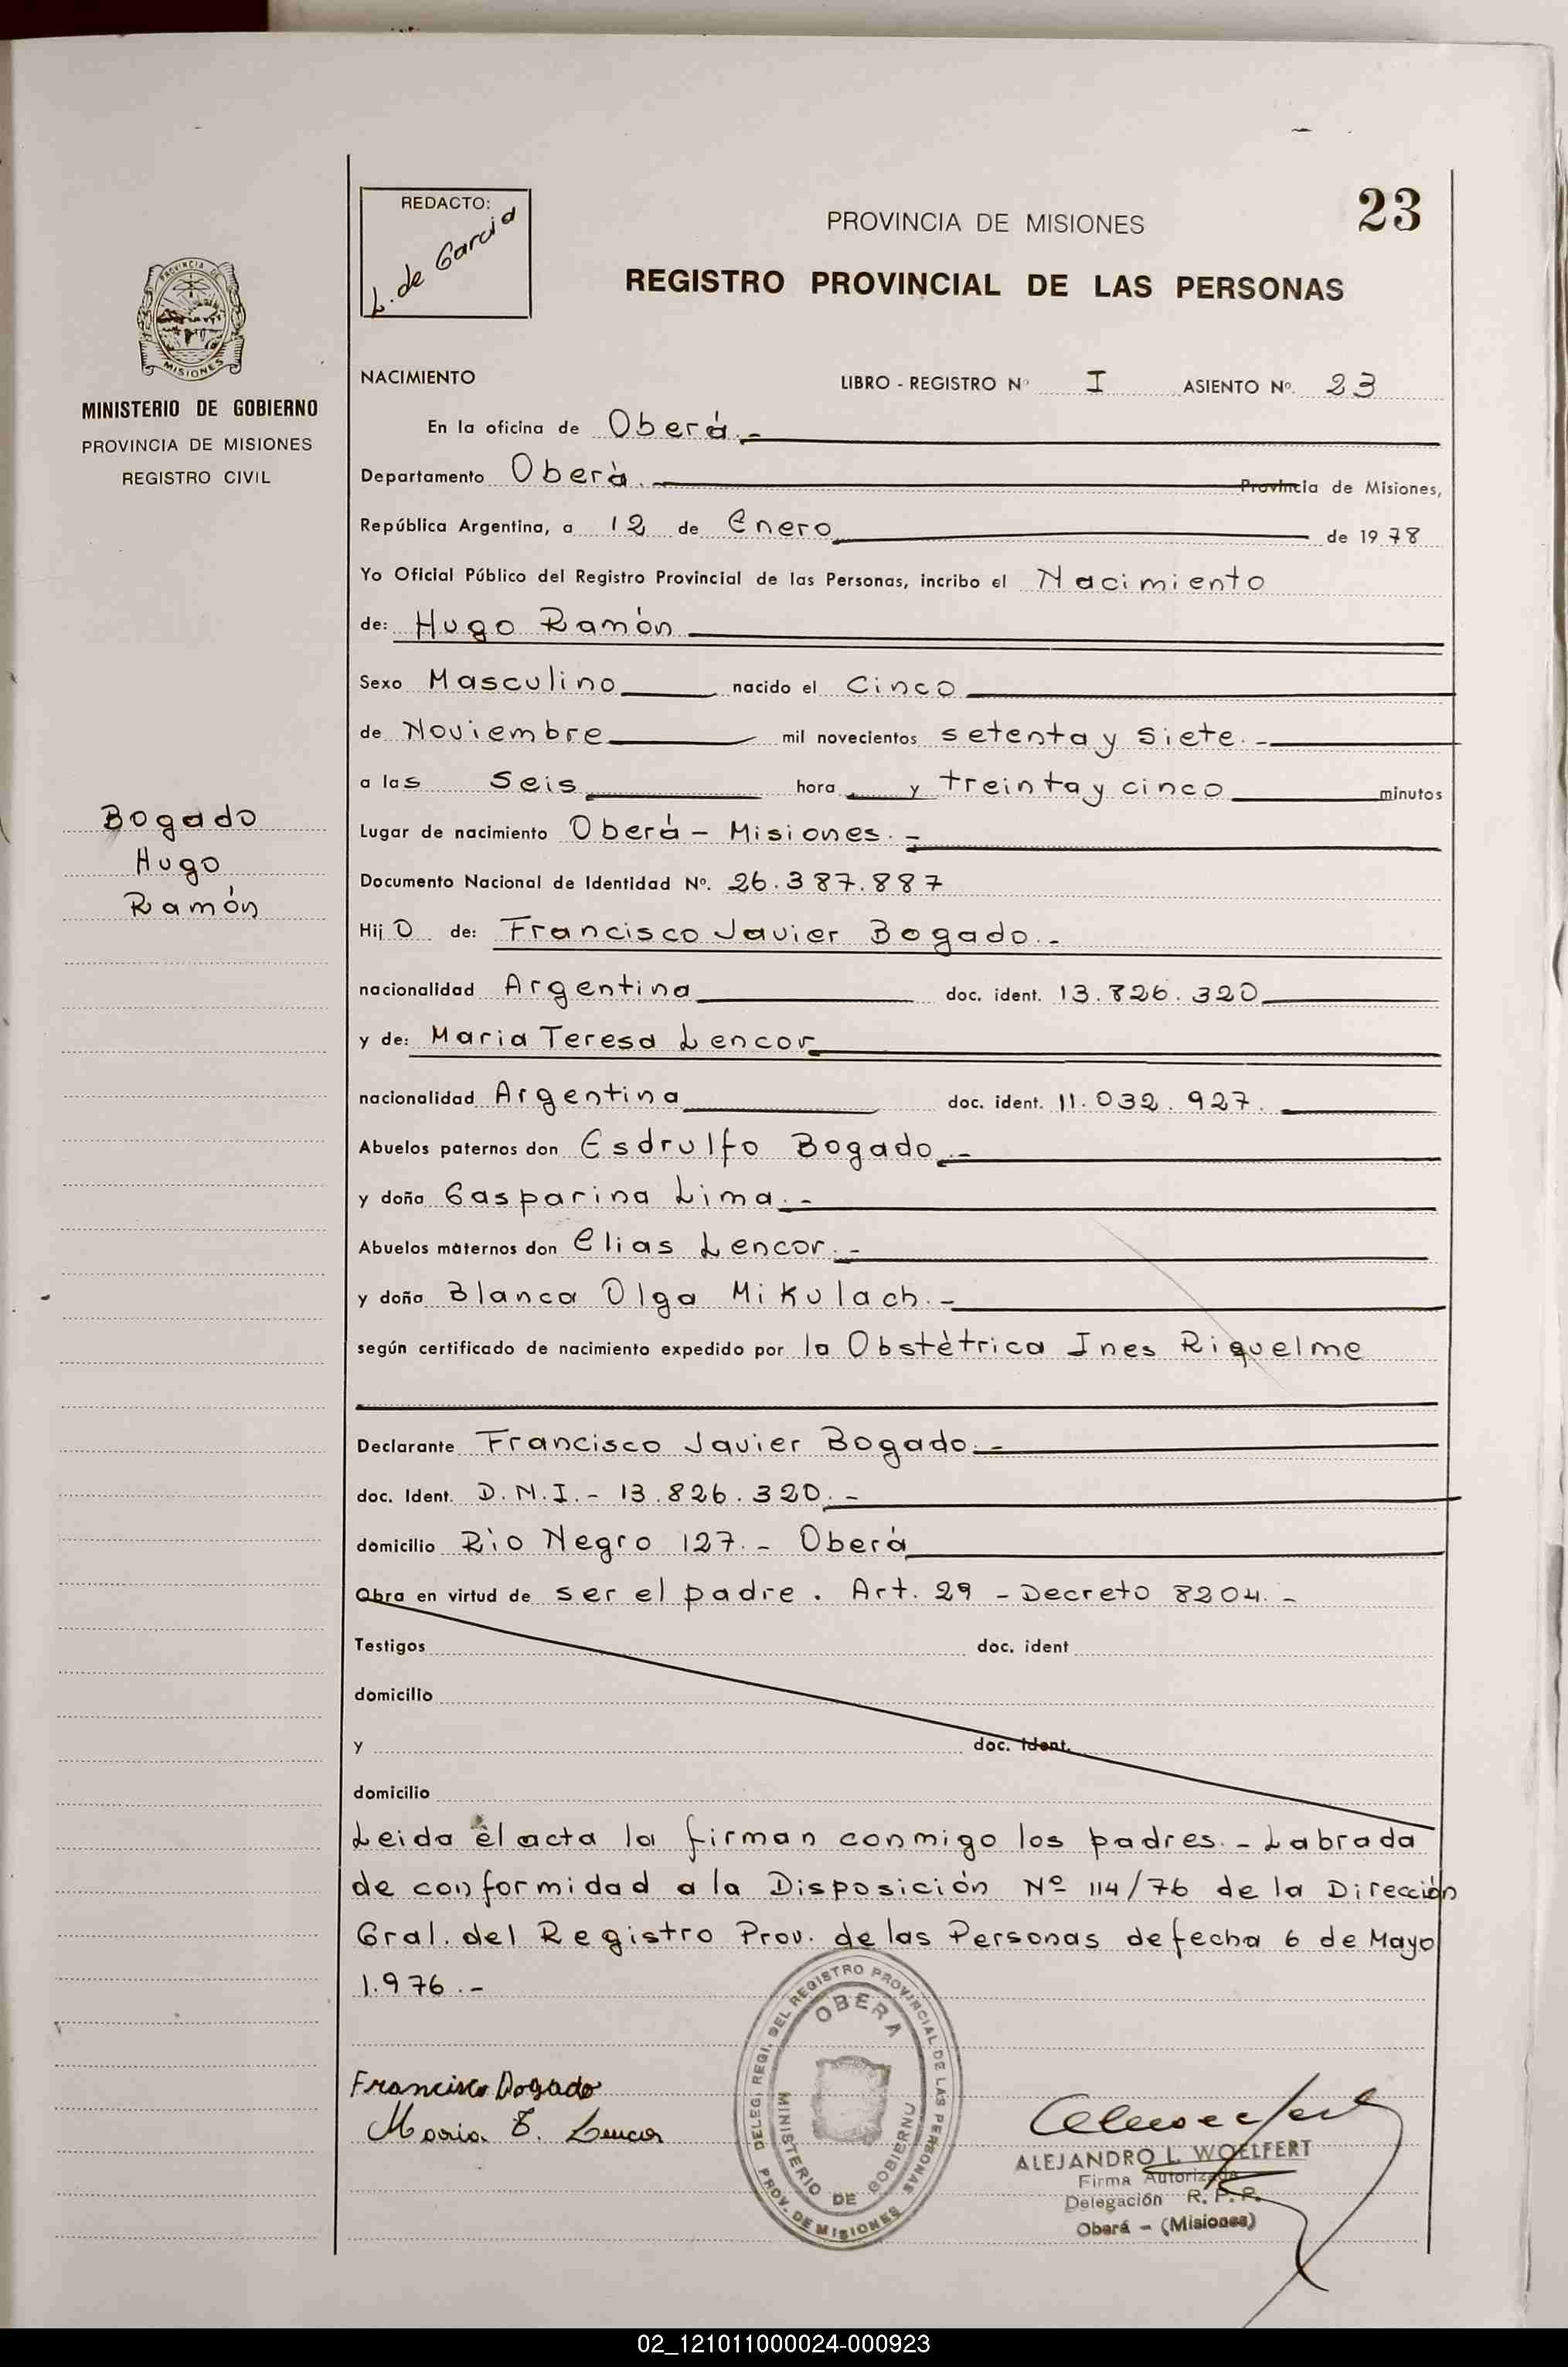 23
REDACTO:
L. de Garcia
PROVINCIA DE MISIONES
REGISTRO PROVINCIAL DE LAS PERSONAS
PROVINCIA DE
MISIONES
MINISTERIO DE GOBIERNO
PROVINCIA DE MISIONES
REGISTRO CIVIL
Bogado
Hugo
Ramón
NACIMIENTO LIBRO - REGISTRO Nº I ASIENTO Nº. 23
En la oficina de Oberá.-
Departamento Oberà. Provincia de Misiones,
República Argentina, a 12 de Enero de 1978
Yo Oficial Público del Registro Provincial de las Personas, incribo el Nacimiento
de: Hugo Ramón
Sexo Masculino nacido el Cinco
de Noviembre mil novecientos setenta y siete.-
a las Seis hora y treinta y cinco minutos
Lugar de nacimiento Oberá - Misiones.-
Documento Nacional de Identidad Nº. 26.387.887
Hij O de: Francisco Javier Bogado.-
nacionalidad Argentina doc. ident. 13.826.320
y de: Maria Teresa Lencor
nacionalidad Argentina doc. ident. 11.032.927.
Abuelos paternos don Esdrulfo Bogado.-
y doña Gasparina Lima.-
Abuelos maternos don Elias Lencor.-
y doña Blanca Olga Mikulach.-
según certificado de nacimiento expedido por la Obstètrica Ines Riquelme
Declarante Francisco Javier Bogado.-
doc. Ident. D.N.I.- 13.826.320.-
domicilio Rìo Negro 127.- Oberà
Obra en virtud de ser el padre. Art. 29 - Decreto 8204.-
Testigos doc. ident
domicilio
y doc. ident.
domicilio
Leida el acta la firman conmigo los padres.- Labrada
de conformidad a la Disposición Nº 114/76 de la Dirección
Gral. del Registro Prov. de las Personas de fecha 6 de Mayo
1.976.-
Francisco Bogado
Maria T. Lencor
DELEG. REGI. DEL REGISTRO PROVINCIAL DE LAS PERSONAS
OBERA
MINISTERIO DE GOBIERNO
PROV. DE MISIONES
ALEJANDRO L. WOELFERT
Firma Autorizada
Delegación R. P. P.
Oberá - (Misiones)
02_121011000024-000923